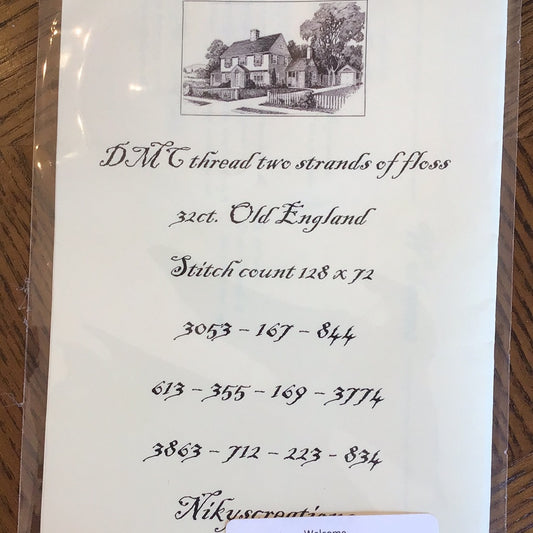 DMC thread two strands of floss
32ct. Old England
Stitch count 128 x 72
3053 – 167 – 844
613 – 355 – 169 – 3774
3863 – 712 – 223 – 834
Nikyscreations
Welcome